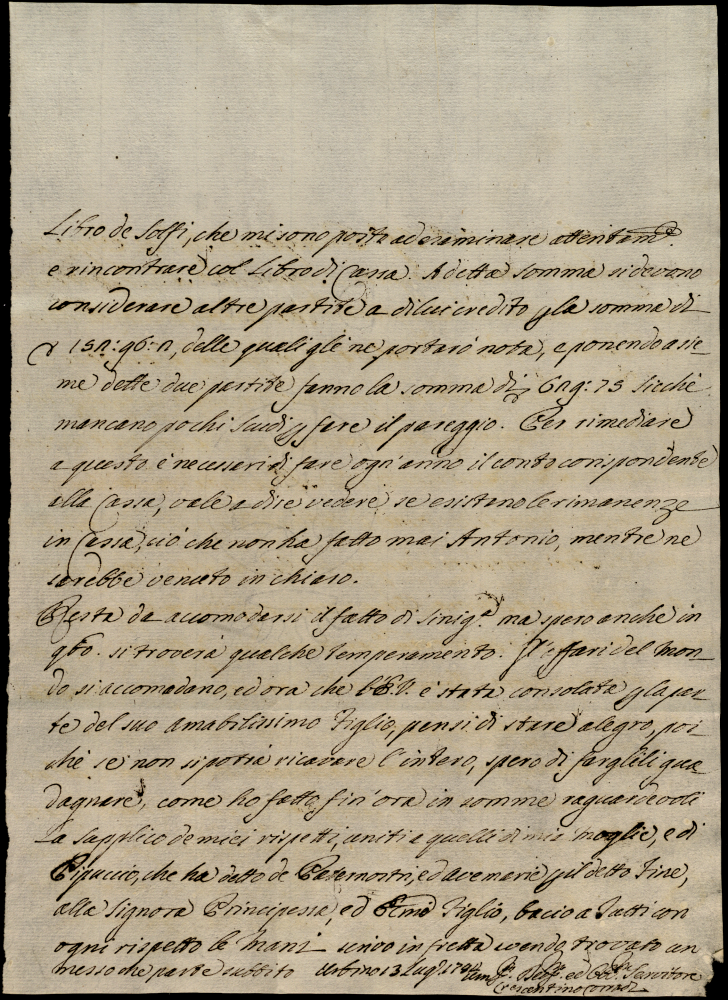 Libro de Solfi, che mi sono posto ad esaminare attentamte.
e rincontrare col Libro di Cassa. A detta somma si devono
considerare altre partite a di lui credito p la somma di
152:96:2, delle quali gle ne portarò nota, e ponendo assie-
me dette due partite fanno la somma di 629:75 sicchè
mancano pochi scudi p fare il pareggio. Per rimediare
a questo è necessario di fare ogn'anno il conto corispondente
alla Cassa, vale a dire vedere, se esistano le rimanenze
in Cassa, ciò che non ha fatto mai Antonio, mentre ne
sarebbe venuto in chiaro.
Resta da accomodarsi il fatto di Sinigª ma spero anche in
qto. si troverà qualche temperamento. Gl'affari del Mon-
do si accomodano, ed ora che l'E.V. è stata consolata p la par-
te del suo amabilissimo Figlio, pensi di stare alegro, poi-
chè se non si potrà ricavare l'intero, spero di farglili gua-
dagnare, come ho fatto fin'ora in somme raguardevoli
La supplico de miei rispetti, uniti a quelli di mia moglie, e di
Pipuccio, che ha detto de Paternostri, ed Avemerie p il detto Fine,
alla Signora Principessa, ed Figlio, bacio a Tutti con
ogni rispetto le mani scrivo in fretta avendo trovato un
messo che parte subbito Urbino 13 Lug. Servitore
Crescentino